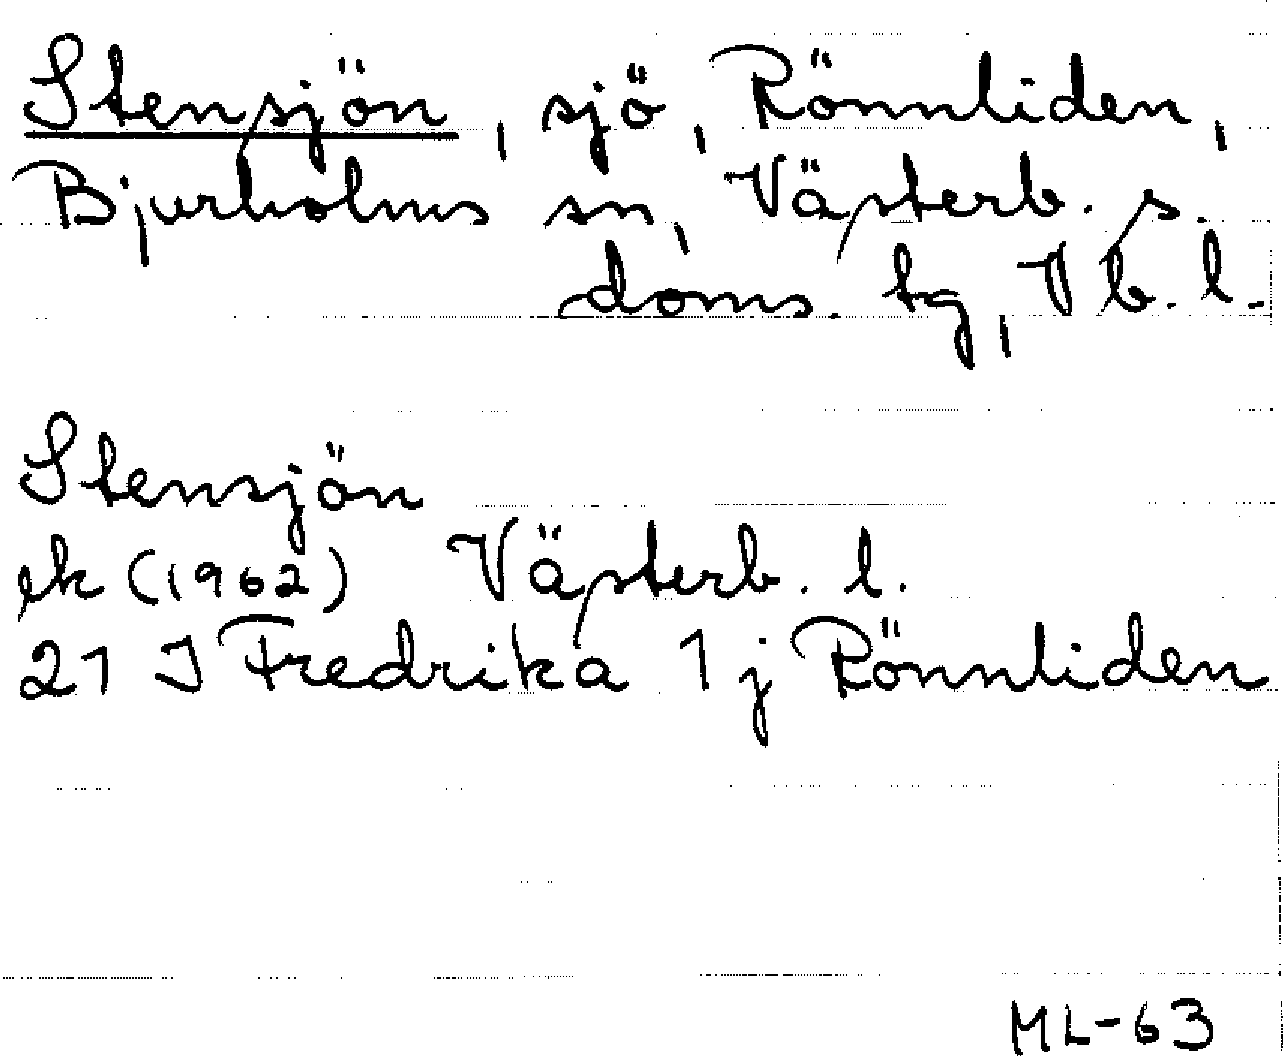 Stensjön, sjö, Rönnliden,
Bjurholms sn, Västerb. s.
doms. tg, Vb. l.
Stensjön
ek (1962) Västerb. l.
21 J Fredrika 1 j Rönnliden
ML-63